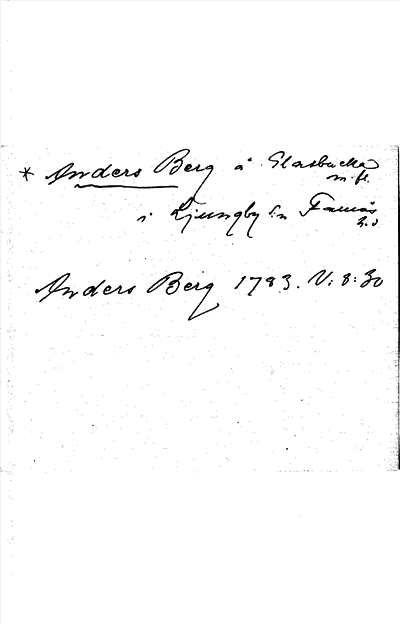 * Anders Berg å Glasbacka
m. fl.
i Ljungby sn Faurås
h.d
Anders Berg 1783. V: 8: 30